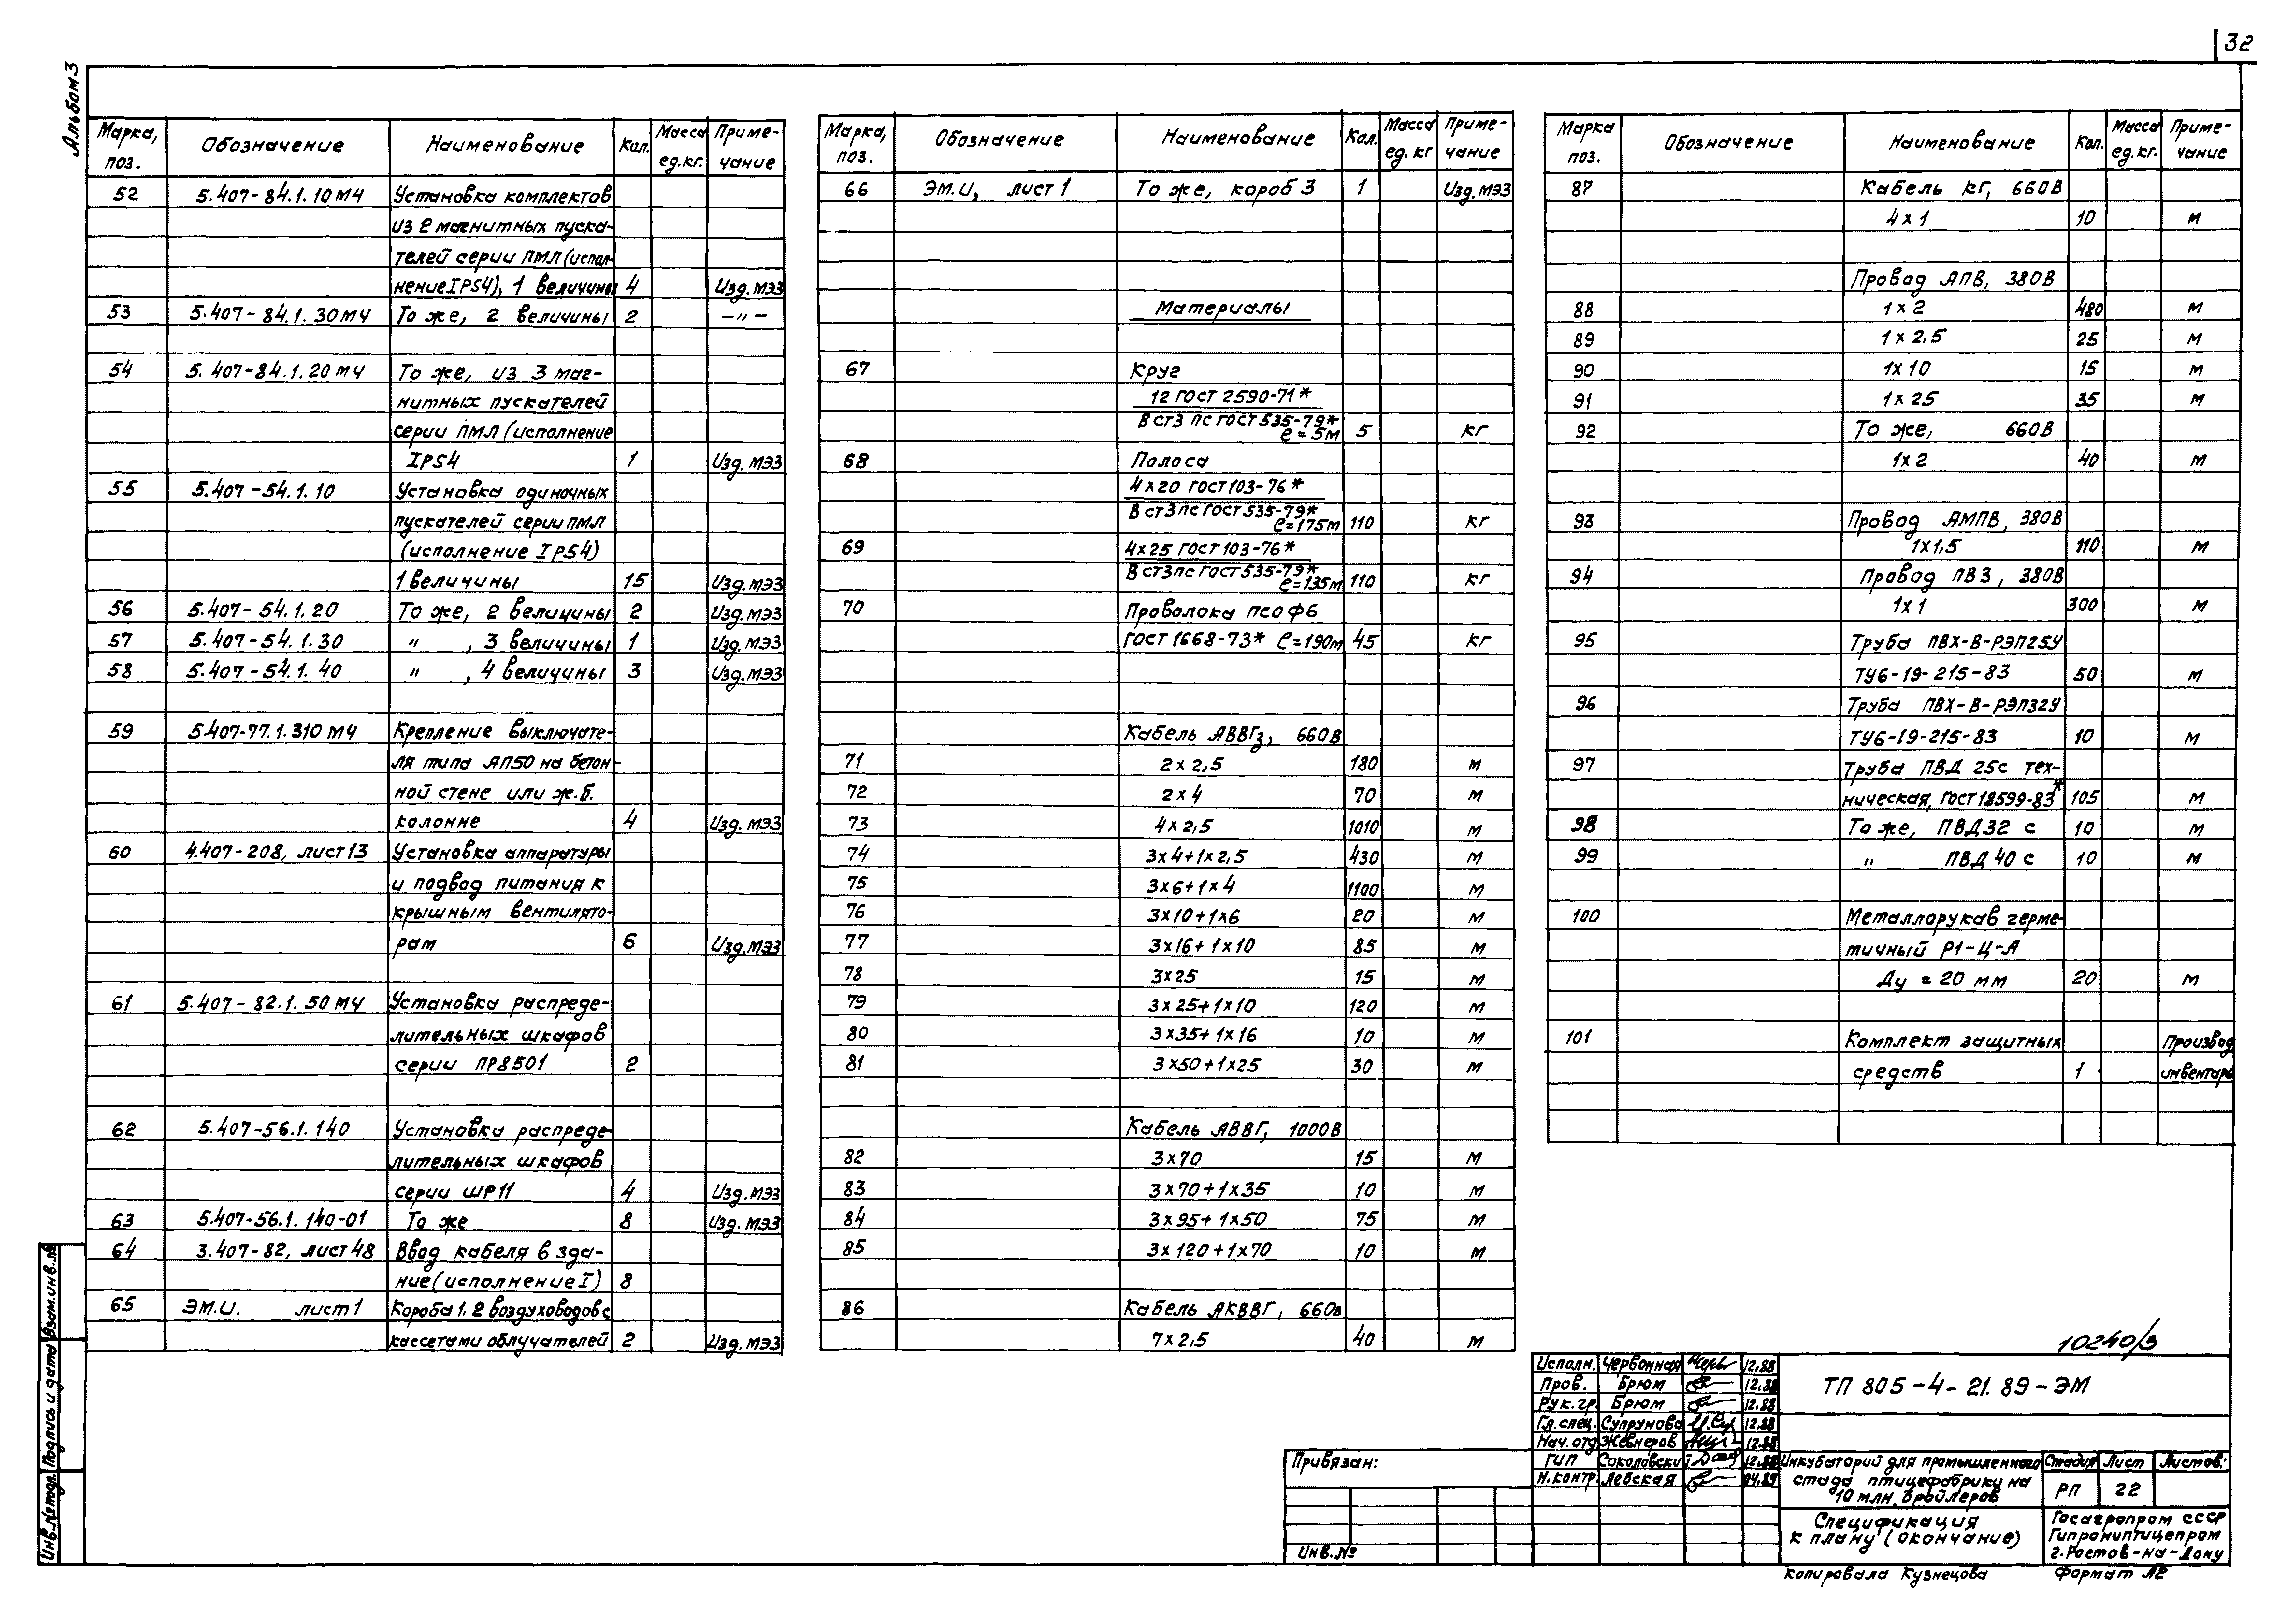 32
Альбом 3
Марка, поз. Обозначение Наименование Кол. Масса ед.кг. Приме-чание
52 5.407-84.1.10МЧ Установка комплектов
из 2 магнитных пуска-
телей серии ПМЛ (испол-
нение IP54), 1 величины 4 Изд. МЭЗ
53 5.407-84.1.30МЧ То же, 2 величины 2 —"—
54 5.407-84.1.20МЧ То же, из 3 маг-
нитных пускателей
серии ПМЛ (исполнение
IP54 1 Изд. МЭЗ
55 5.407-54.1.10 Установка одиночных
пускателей серии ПМЛ
(исполнение IP54)
1 величины 15 Изд. МЭЗ
56 5.407-54.1.20 То же, 2 величины 2 Изд. МЭЗ
57 5.407-54.1.30 " , 3 величины 1 Изд. МЭЗ
58 5.407-54.1.40 " , 4 величины 3 Изд. МЭЗ
59 5.407-77.1.310МЧ Крепление выключате-
ля типа АП50 на бетон-
ной стене или ж.б.
колонне 4 Изд. МЭЗ
60 4.407-208, лист 13 Установка аппаратуры
и подвод питания к
крышным вентилято-
рам 6 Изд. МЭЗ
61 5.407-82.1.50МЧ Установка распреде-
лительных шкафов
серии ПР8501 2
62 5.407-56.1.140 Установка распреде-
лительных шкафов
серии ШР11 4 Изд. МЭЗ
63 5.407-56.1.140-01 То же 8 Изд. МЭЗ
64 3.407-82, лист 48 Ввод кабеля в зда-
ние (исполнение I) 8
65 ЭМ.И. лист 1 Короба 1, 2 воздуховодов с
кассетами облучателей 2 Изд. МЭЗ
Марка, поз. Обозначение Наименование Кол. Масса ед. кг Приме-чание
66 ЭМ.И, лист 1 То же, короб 3 1 Изд. МЭЗ
Материалы
67 Круг
12 ГОСТ 2590-71*
В ст3 пс ГОСТ 535-79*
ℓ = 5м 5 кг
68 Полоса
4×20 ГОСТ 103-76*
В ст3пс ГОСТ 535-79*
ℓ=175м 110 кг
69 4×25 ГОСТ 103-76*
В ст3пс ГОСТ 535-79*
ℓ=135м 110 кг
70 Проволока псоф6
ГОСТ 1668-73* ℓ=190м 45 кг
Кабель АВВГз, 660В
71 2×2,5 180 м
72 2×4 70 м
73 4×2,5 1010 м
74 3×4+1×2,5 430 м
75 3×6+1×4 1100 м
76 3×10+1×6 20 м
77 3×16+1×10 85 м
78 3×25 15 м
79 3×25+1×10 120 м
80 3×35+1×16 10 м
81 3×50+1×25 30 м
Кабель АВВГ, 1000В
82 3×70 15 м
83 3×70+1×35 10 м
84 3×95+1×50 75 м
85 3×120+1×70 10 м
86 Кабель АКВВГ, 660в
7×2,5 40 м
Марка поз. Обозначение Наименование Кол. Масса ед.кг. Приме-чание
87 Кабель КГ, 660В
4×1 10 м
Провод АПВ, 380В
88 1×2 480 м
89 1×2,5 25 м
90 1×10 15 м
91 1×25 35 м
92 То же, 660В
1×2 40 м
93 Провод АМПВ, 380В
1×1,5 110 м
94 Провод ПВ3, 380В
1×1 300 м
95 Труба ПВХ-В-РЭП25У
ТУ6-19-215-83 50 м
96 Труба ПВХ-В-РЭП32У
ТУ6-19-215-83 10 м
97 Труба ПВД 25с тех-
ническая, ГОСТ 18599-83* 105 м
98 То же, ПВД32 с 10 м
99 " ПВД 40 с 10 м
100 Металлорукав герме-
тичный Р1-Ц-А
Ду = 20 мм 20 м
101 Комплект защитных Производ
средств 1 инвентарь
10240/3
Исполн. Червонная 12.88
Пров. Брюм 12.88
Рук. гр. Брюм 12.88
Гл. спец. Супрунова 12.88
Нач. отд Жевнеров 12.88
ГИП Соколовский 12.88
Н. контр. Левская 04.89
ТП 805-4-21.89-ЭМ
Инкубаторий для промышленного
стада птицефабрики на
10 млн. бройлеров
Стадия Лист Листов:
РП 22
Спецификация
к плану (окончание)
Госагропром СССР
Гипрониптицепром
г. Ростов-на-Дону
Привязан:
Инв. №
Копировала Кузнецова Формат А2
Взам. инв. №
Подпись и дата
Инв. № подл.